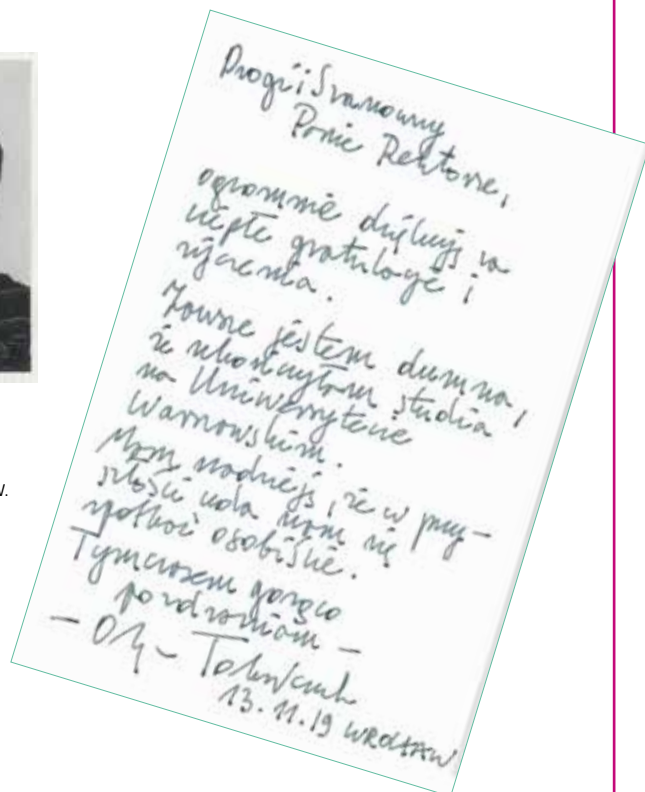 Drogi i Szanowny
Panie Rektorze,
ogromnie dziękuję za
ciepłe gratulacje i
życzenia.
Zawsze jestem dumna,
że ukończyłam studia
na Uniwersytecie
Warszawskim.
Mam nadzieję, że w przy-
szłości uda nam się
spotkać osobiście.
Tymczasem gorąco
pozdrawiam –
– Olga Tokarczuk
13.11.19 WROCŁAW.